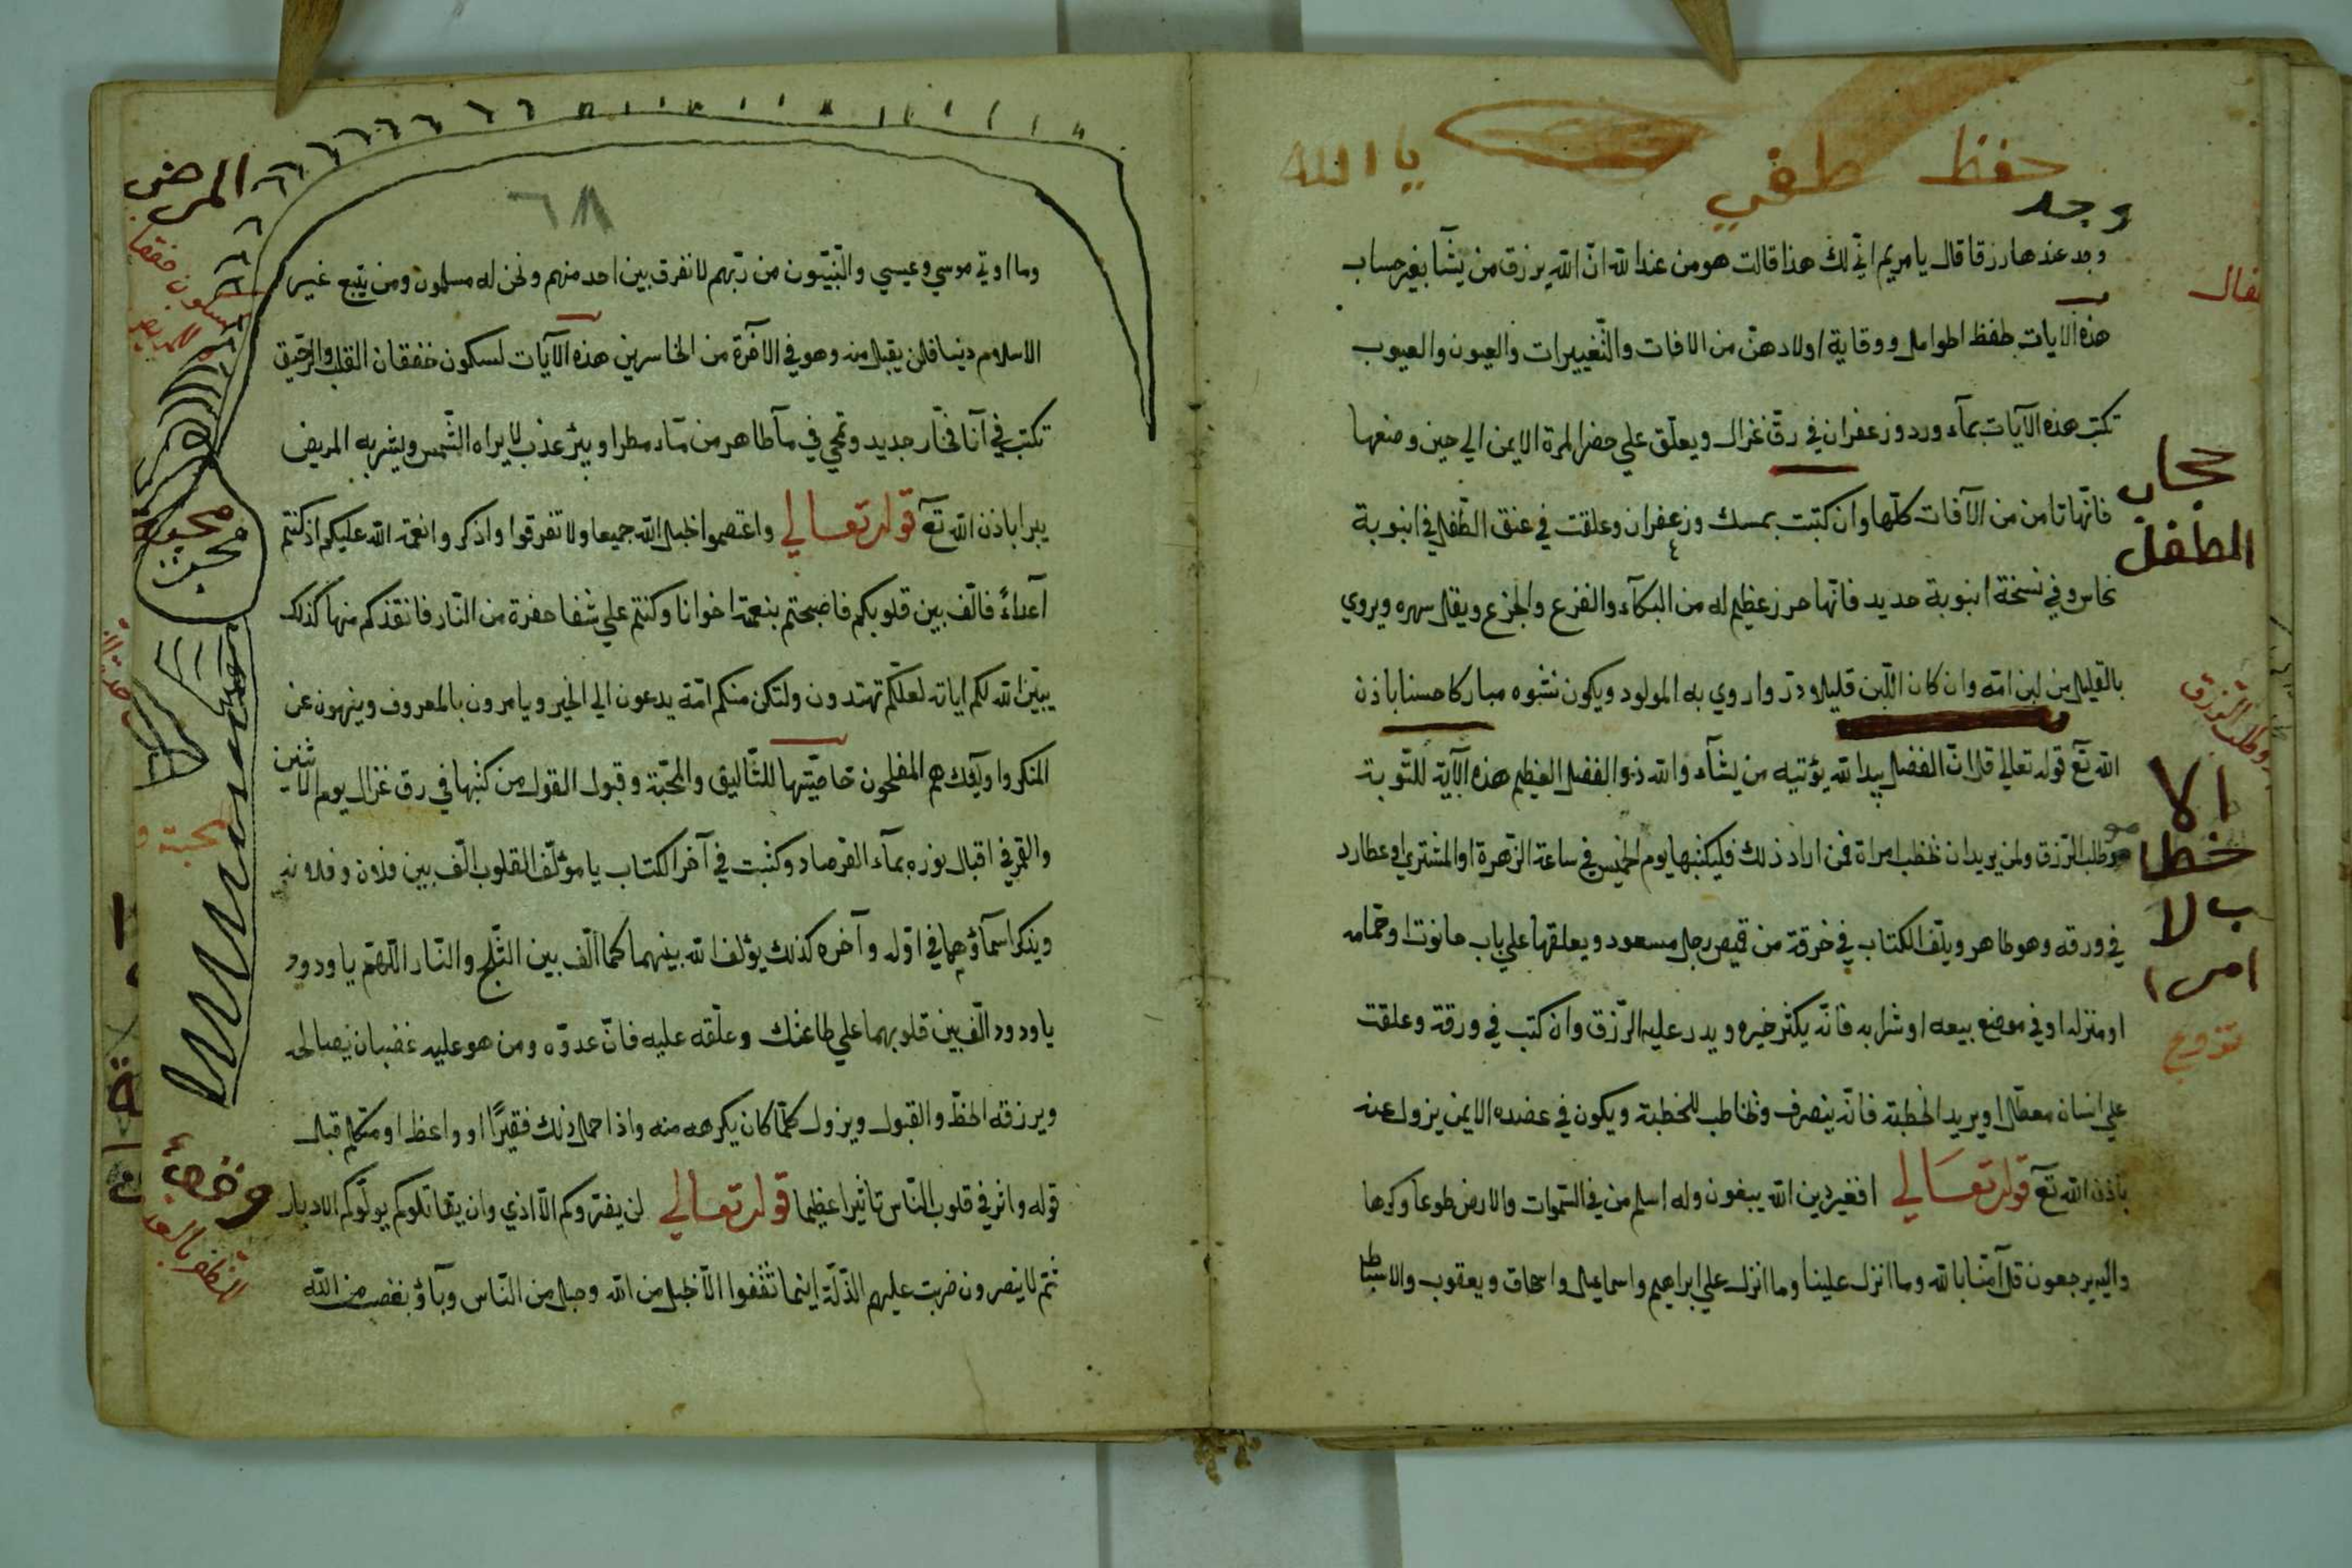 حفظ طفي يا الله
وجد
وجد عندها رزقا قال يا مريم انّي لك هذا قالت هو من عند الله انّ الله يرزق من يشآ بغير حساب
هذه الآيات لحفظ الحوامل ووقاية اولادهنّ من الافات والتّغييرات والعيون والعيوب
تكتب هذه الآيات بمآء ورد وزعفران في رقّ غزال ويعلّق علي حضر المرة الايمن الي حين وضعها
فانّها تامن من الآفات كلّها وان كتبت بمسك وزعفران وعلقت في عنق الطّفل في انبوبة
نحاس وفي نسخة انبوبة حديد فانّها حرز عظيم له من البكآء والفزع والجزع ويقل سهره ويروي
بالقليل من لبن امّه وان كان اللّبن قليلا درّ واروي به المولود ويكون نشوه مباركا حسنا باذن
الله تعآ قوله تعالي قل انّ الفضل بيد الله يؤتيه من يشآء والله ذو الفضل العظيم هذه الآية للتّوبة
وطلب الرّزق ولمن يريد ان يخطب امراة فمن اراد ذلك فليكتبها يوم الخميس في ساعة الزّهرة او المشتري او عطارد
في ورقه وهو طاهر ويلّف الكتاب في خرقة من قميص رجل مسعود ويعلقها علي باب حانوت او حمّامه
او منزله او في موضع بيعه او شرابه فانّه يكثر خيره ويدر عليه الرّزق وان كتب في ورقة وعلقت
علي انسان معطّل او يريد الخطبة فانّه ينصرف ويخاطب للخطبة ويكون في عضده الايمن يزول عنه
باذن الله تعآ قوله تعالي افغير دين الله يبغون وله اسلم من في السّموات والارض طوعا وكرها
واليه يرجعون قل آمنّا بالله وما انزل علينا وما انزل علي ابراهيم واسماعيل واسحاق ويعقوب والاسباط
حجاب
الطفل
وطلب الرزق
الا
خطا
ب لا
امرا
تزويج
٦٨
وما اوتي موسي وعيسي والنّبيّون من ربّهم لا نفرق بين احد منهم ونحن له مسلمون ومن يتبع غير
الاسلام دينا فلن يقبل منه وهو في الآخرة من الخاسرين هذه الآيات لسكون خفقان القلب والرّجيق
تكتب في آنا فخّار جديد وتمحي في مآ طاهر من مآء مطر او بير عذب لا يراه الشّمس ويشربه المريض
يبرا باذن الله تعآ قوله تعالي واعتصموا بحبل الله جميعا ولا تفرقوا واذكروا نعمة الله عليكم اذ كنتم
آعداءً فالّف بين قلوبكم فاصبحتم بنعمته اخوانا وكنتم علي شفا حفرة من النّار فانقذكم منها كذلك
يبيّن الله لكم اياته لعلّكم تهتدون ولتكن منكم امّة يدعون الي الخير ويامرون بالمعروف وينهون عن
المنكر واولآيك هم المفلحون خاصّيّتها للتّاليق والمحبّة وقبول القول من كتبها في رق غزال يوم الاثنين
والقمر في اقبال نوره بمآء الفرصاد وكتبت في آخر الكتاب يا مؤلّف القلوب الّف بين فلان وفلانه
ويذكر اسمآؤهما في اوّله وآخره كذلك يؤلف الله بينهما كما الّف بين الثّلج والنّار اللّهمّ يا ودود
يا ودود الّف بين قلوبهما علي طاعتك وعلّقه عليه فانّ عدوّه ومن هو عليه غضبان يصالحه
ويرزقه الحظّ والقبول ويزول كلّما كان يكرهه منه واذا حمل ذلك فقيرًا او واعظ او متكلم قبل
قوله واثر في قلوب النّاس تاثيرا عظيما قوله تعالي لن يضروكم الّا اذي وان يقاتلوكم يولّوكم الادبار
ثمّ لا ينصرون ضربت عليهم الذّلّة اينما ثقفوا الّا بحبل من الله وحبل من النّاس وبآؤ بغضب من الله
المرض
لسكون خفقا
محبت